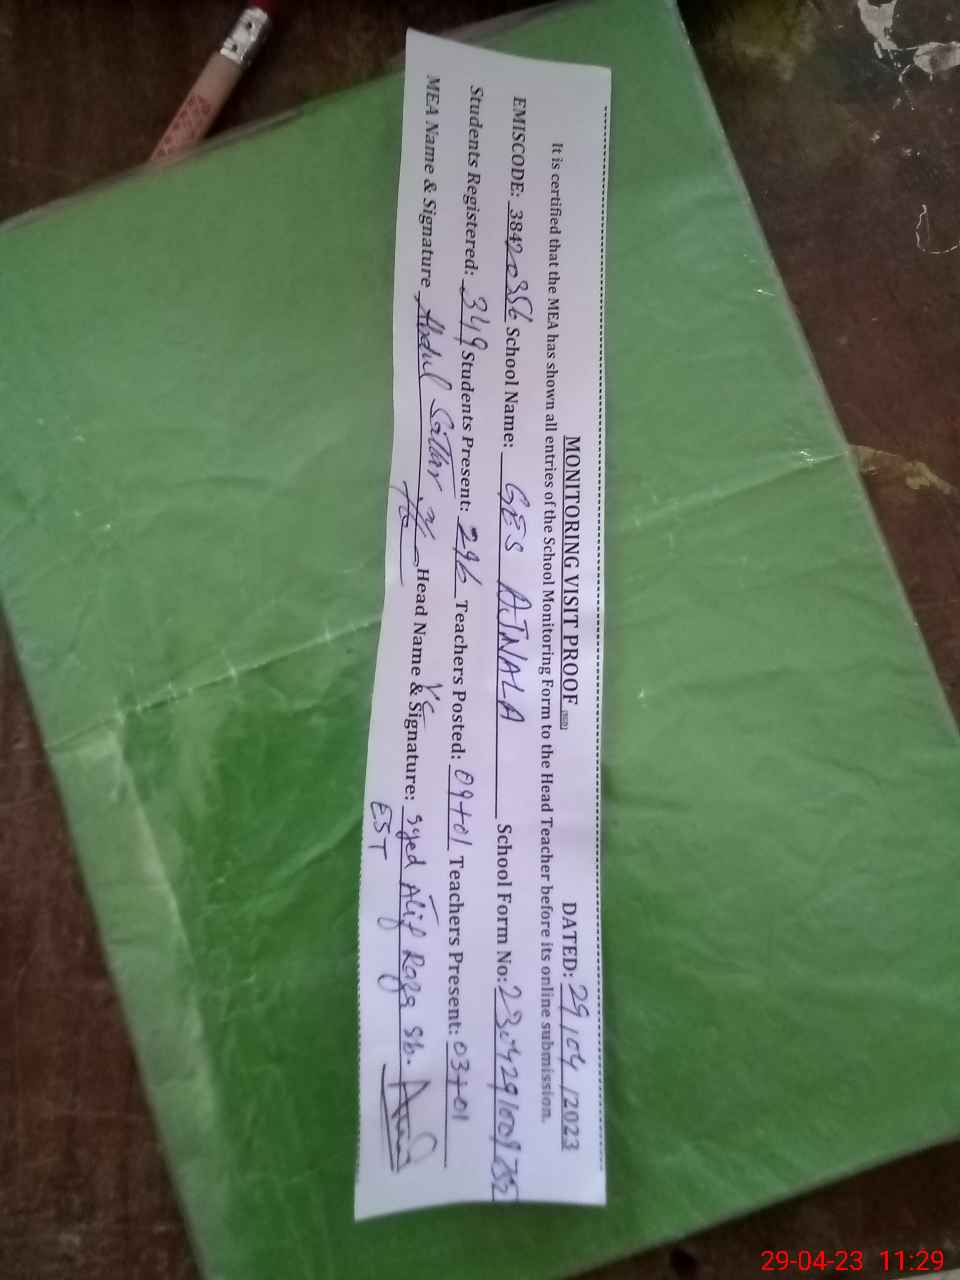 MONITORING VISIT PROOF DATED: 29/04/2023
It is certified that the MEA has shown all entries of the School Monitoring Form to the Head Teacher before its online submission.
EMISCODE: 38420356 School Name: GES AJNALA School Form No:
Students Registered: 349 Students Present: 296 Teachers Posted: 09+01 Teachers Present: 03+01
MEA Name & Signature Abdul Sattar Head Name & Signature: Syed Atif Raza Sb.
EST
29-04-23 11:29